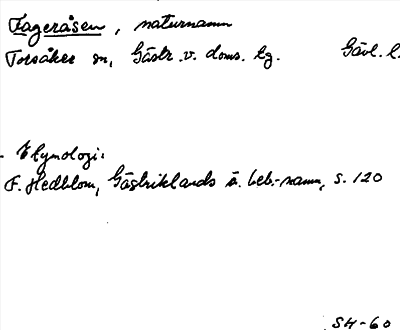 Fageråsen, naturnamn
Torsåker sn, Gästr. v. doms. tg. Gävl. l.
- Etymologi:
F. Hedblom, Gästriklands ä. beb.-namn, s. 120
SH-60